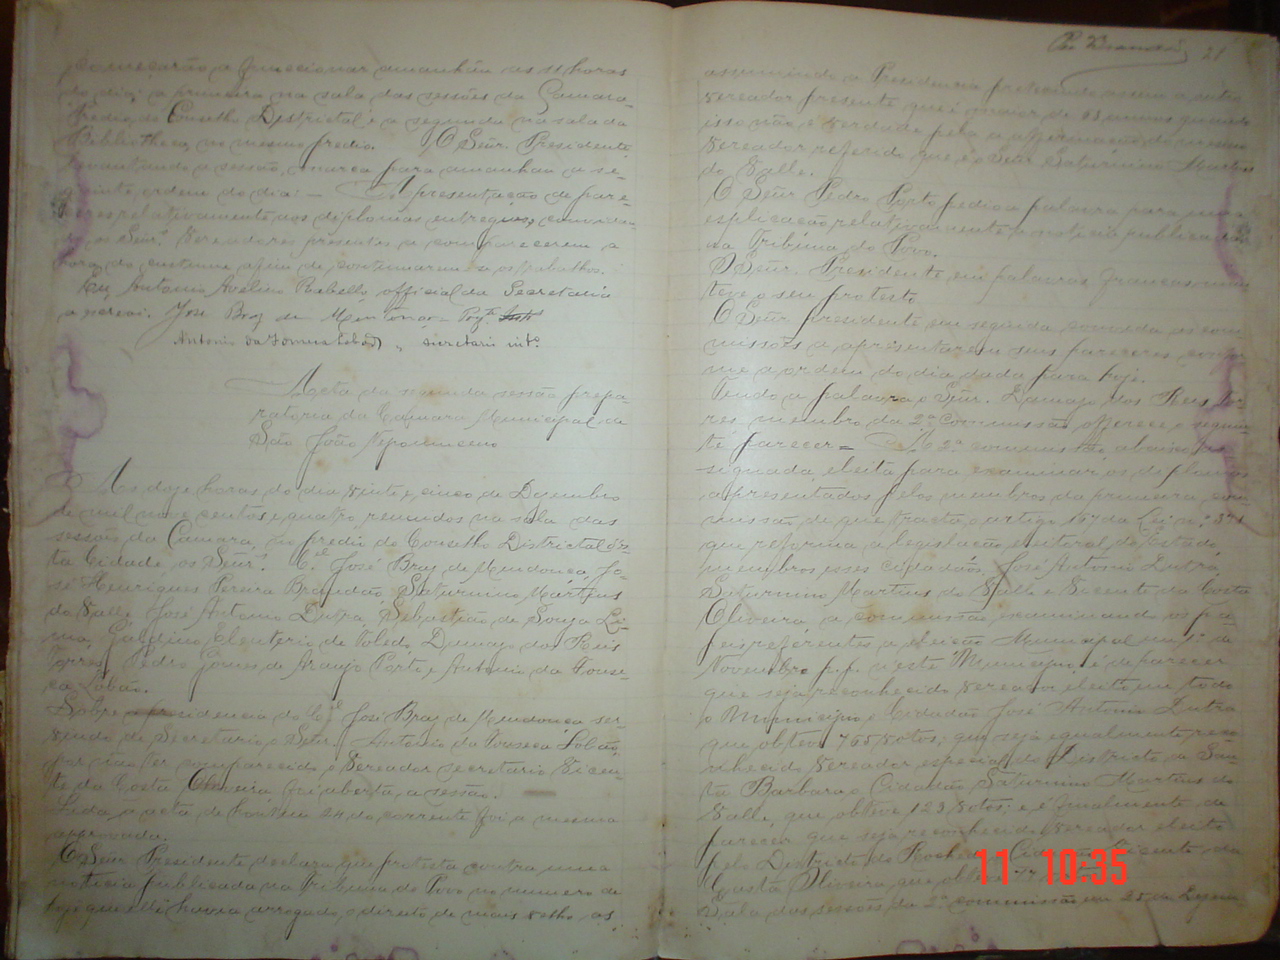 começarão a funccionar amanhan as 11 horas
do dia: a primeira na sala das sessões da Camara,
Predio do Conselho Districtal e a segunda na sala da
Bibliotheca, no mesmo predio. O Señr. Presidente,
levantando a sessão, marca para amanhan a se-
guinte ordem do dia: — Apresentação de pare-
ceres relativamente aos diplomas entregues, convidan-
do os Señrs. Vereadores presentes a comparecerem a
hora do costume afim de continuarem os trabalhos.
Eu, Antonio Avelino Rabello, official da Secretaria
a escrevi. José Braz de Mendonça
Antonio da Fonseca Lobão, secretario intº.
Acta da segunda sessão prepa-
ratoria da Camara Municipal de
São João Nepomuceno
Aos doze horas do dia vinte e cinco de Dezembro
de mil nove centos e quatro, reunidos na sala das
sessões da Camara, no predio do Conselho Districtal d'es-
ta Cidade os Señrs. Cel. José Braz de Mendonça, Jo-
sé Henriques Pereira Brandão, Saturnino Martins
do Valle, José Antonio Dutra, Sebastião de Souza Li-
ma, Galdino Eleuterio de Toledo, Damazo dos Reis
Torres, Pedro Gomes de Araujo Porto e Antonio da Fonse-
ca Lobão.
Sobre a presidencia do Cel. José Braz de Mendonça ser-
vindo de Secretario o Señr. Antonio da Fonseca Lobão,
por não ter comparecido o Vereador secretario Vicen-
te da Costa Oliveira, foi aberta a sessão.
Lida a acta de hontem 24 do corrente foi a mesma
approvada.
O Señr Presidente declara que protesta contra uma
noticia publicada na Tribuna do Povo no numero de
hoje que elle havia arrogado o direito de mais velho as
Brandão 21
assumindo a Presidencia preterindo assim a outro
vereador presente que é maior de 63 annos quando
isso não é verdade pela a affirmação do mesmo
Vereador referido que é o Señr Saturnino Martins
do Valle.
O Señr Pedro Porto pedio a palavra para uma
explicação relativamente a noticia publicada
na Tribuna do Povo.
O Señr. Presidente em palavras francas
teve o seu protesto.
O Señr presidente em seguida convida as com
missões a apresentarem seus pareceres confor
me a ordem do dia dada para hoje.
Tendo a palavra o Señr. Damazo dos Reis Tor-
res membro da 2ª Commissão, offerece o seguin-
te parecer = A 2ª commissão abaixo as
signada eleita para examinar os diplomas
apresentados pelos membros da primeira com
missão de que tracta o artigo 167 da Lei n.º 371
que reforma a legislação eleitoral do Estado,
membros esses cidadãos, José Antonio Dutra,
Saturnino Martins do Valle e Vicente da Costa
Oliveira a commissão, examinando os pa
peis referentes a eleição Municipal em 1º de
Novembro p.p. n'este Municipio, é de parecer
que seja reconhecido vereador eleito em todo
o Municipio o Cidadão José Antonio Dutra
que obteve 765 votos; que seja egualmente reco
nhecido vereador especial do Districto de San
ta Barbara o Cidadão Saturnino Martins do
Valle, que obteve 123 votos; e é egualmente de
parecer que seja reconhecido Vereador eleito
pelo Districto do Rochedo o Cidadão Vicente da
Costa Oliveira que obteve 77
Sala das sessões da 2ª commissão em 25 de Dezem
11 10:35